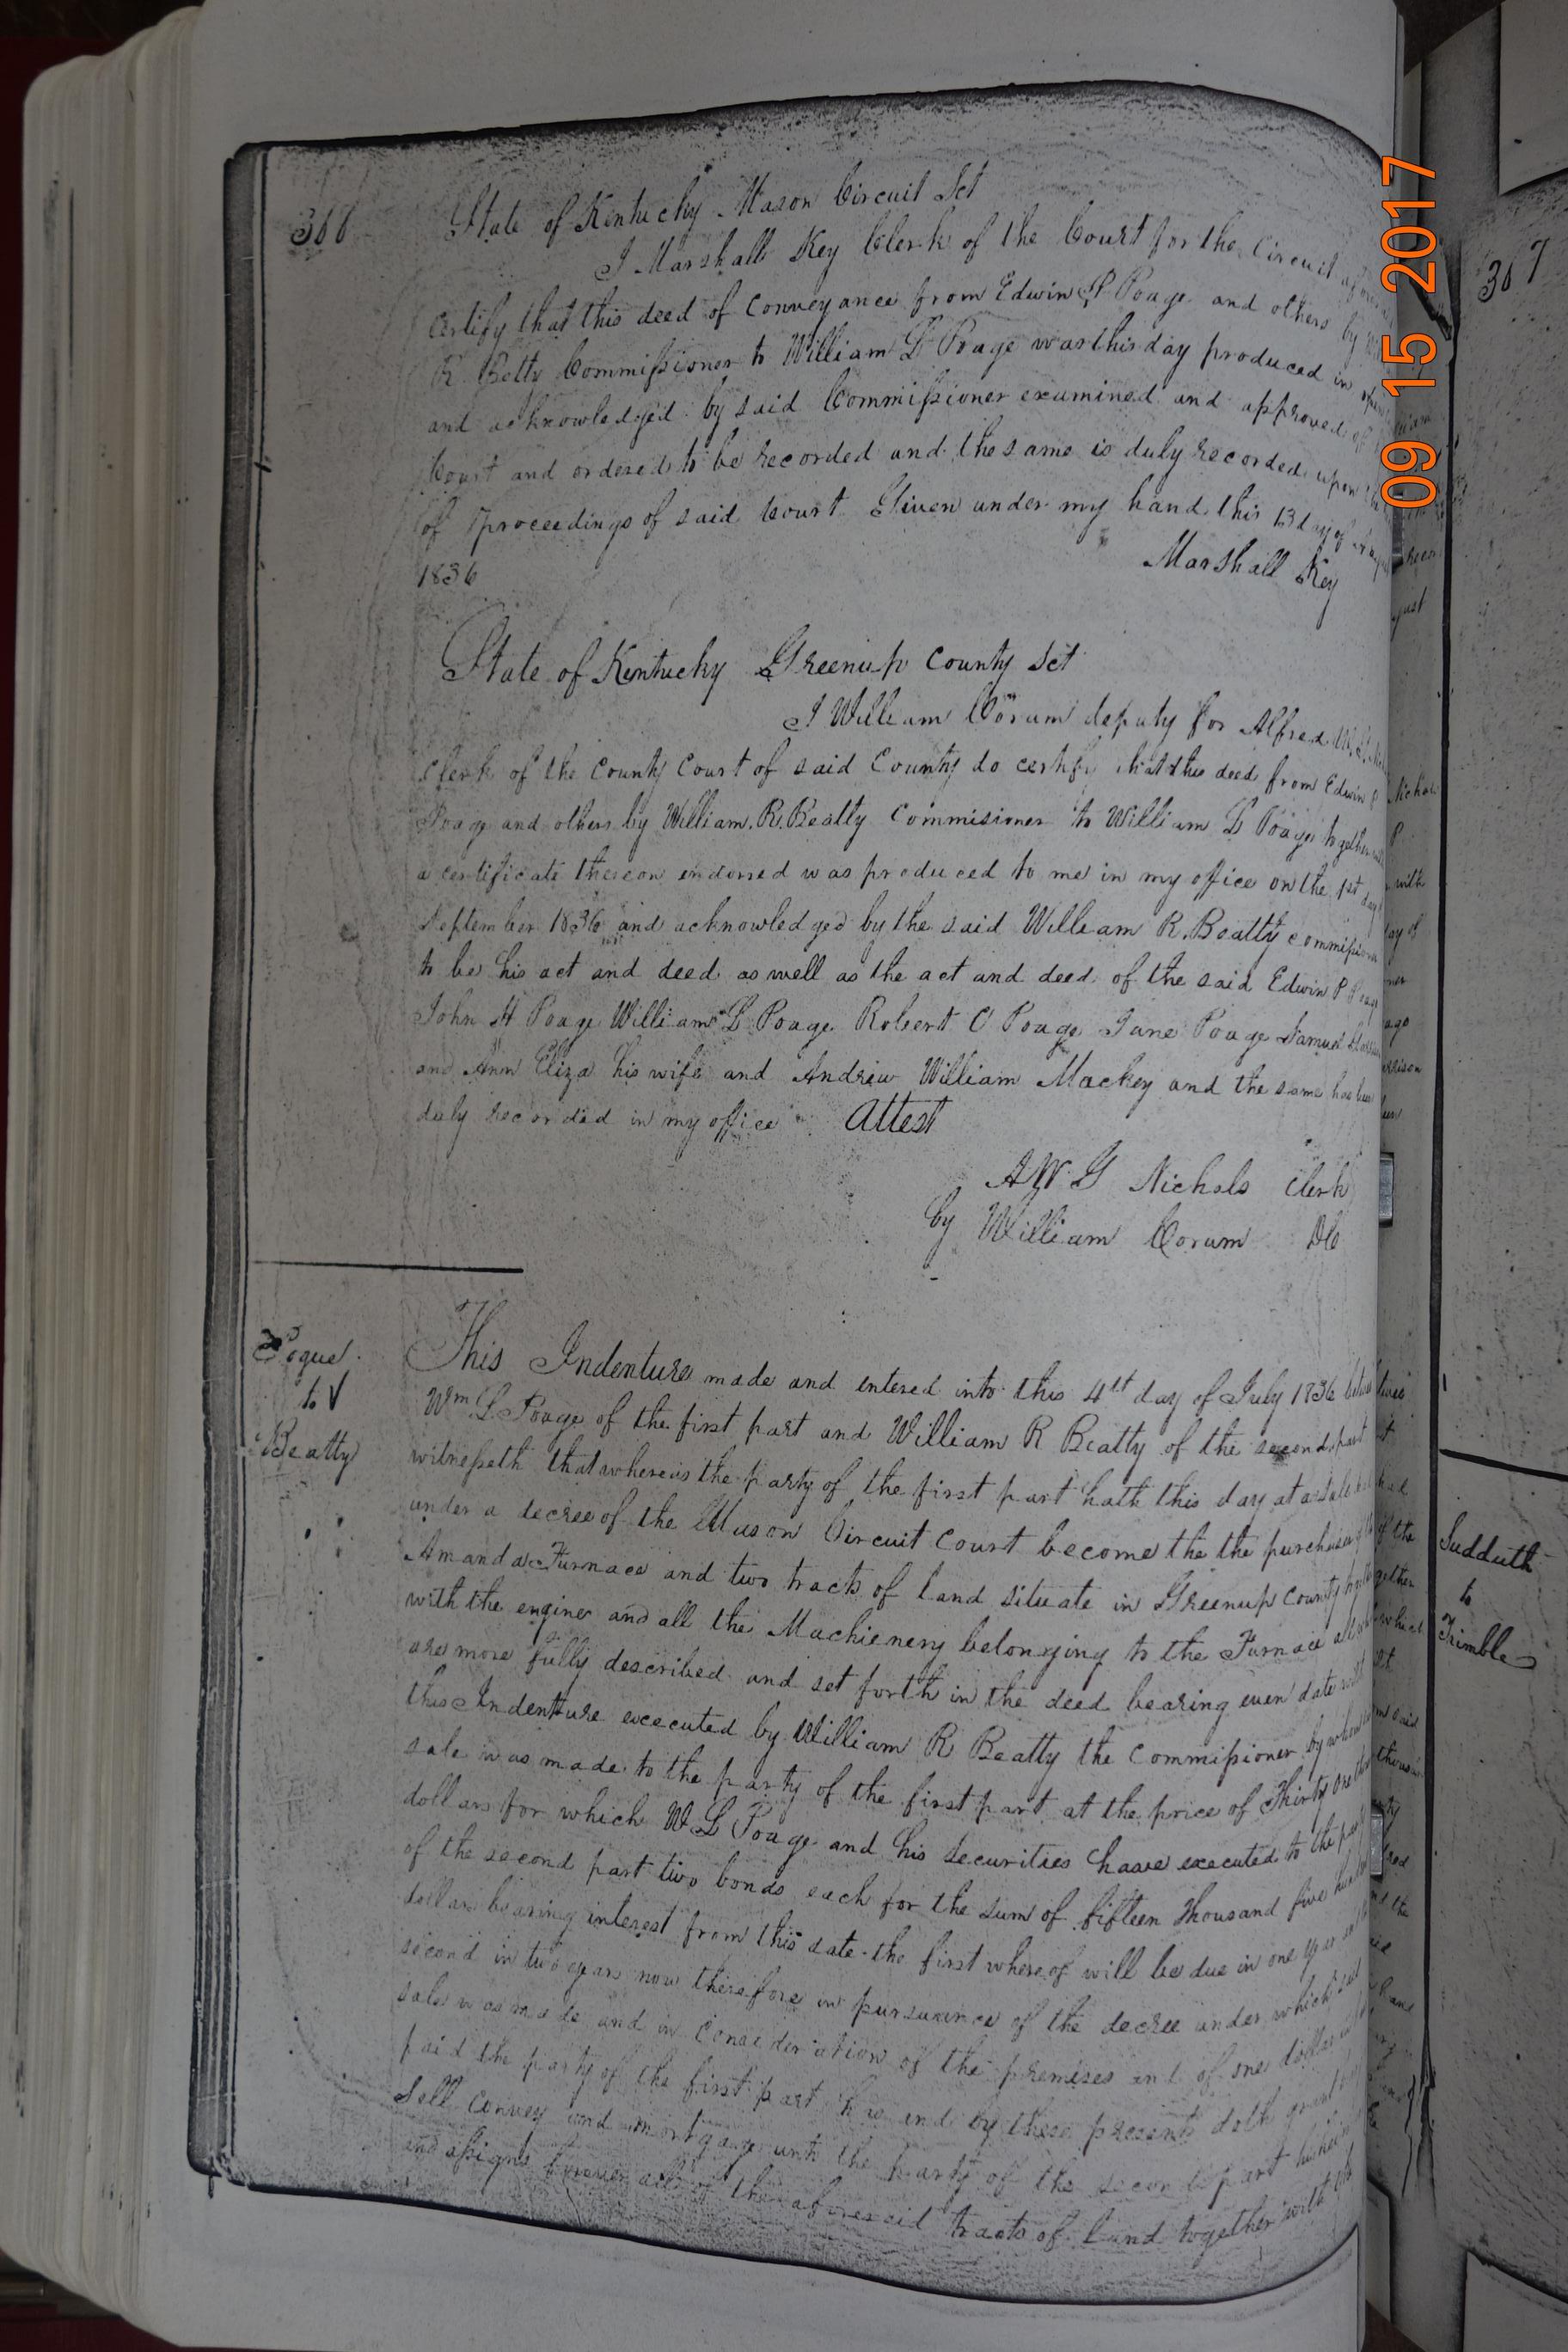 366
State of Kentucky Mason Circuit Sct
I Marshall Key Clerk of the Court for the Circuit
certify that this deed of conveyance from Edwin P Poage and others by
R. Betty Commissioner to William L Poage was this day produced in open
and acknowledged by said Commissioner examined and approved of
Court and ordered to be recorded and the same is duly recorded upon the
of proceedings of said Court Given under my hand this 13 day of
1836
Marshall Key
State of Kentucky Greenup County Sct
I William Corum deputy for Alfred
Clerk of the County Court of said County do certify that this deed from Edwin P
Poage and others by William R. Beatty Commisioner to William L Poage together
a certificate thereon endorsed was produced to me in my office on the 1st day
September 1836 and acknowledged by the said William R. Beatty commissioner
to be his act and deed as well as the act and deed of the said Edwin P Poage
John H Poage William L Poage Robert C Poage Jane Poage Samuel
and Ann Eliza his wife and Andrew William Mackey and the same has been
duly recorded in my office Attest
A W G Nichols Clerk
by William Corum DC
Pogue
to
Beatty
This Indenture made and entered into this 4st day of July 1836
Wm L Poage of the first part and William R Beatty of the second part
witnesseth that whereas the party of the first part hath this day at a sale
under a decree of the Mason Circuit Court become the the purchaser of the
Amanda Furnace and two tracts of land situate in Greenup County together
with the engine and all the Machienery belonging to the Furnace all which
are more fully described and set forth in the deed bearing even date
this Indenture executed by William R Beatty the Commissioner by whom
sale was made to the party of the first part at the price of Thirty one
dollars for which W L Poage and his Securities have executed to the party
of the second part two bonds each for the sum of fifteen Thousand five
dollars bearing interest from this date the first whereof will be due in one year
second in two years now therefore in pursuance of the decree under which
sale was made and in consideration of the premises and of one dollar
paid the party of the first part has and by these presents doth grant
Sell convey and mortgage unto the party of the second part
and assigns forever all of the aforesaid tracts of land together with
367
Sudduth
to
Trimble
09 15 2017